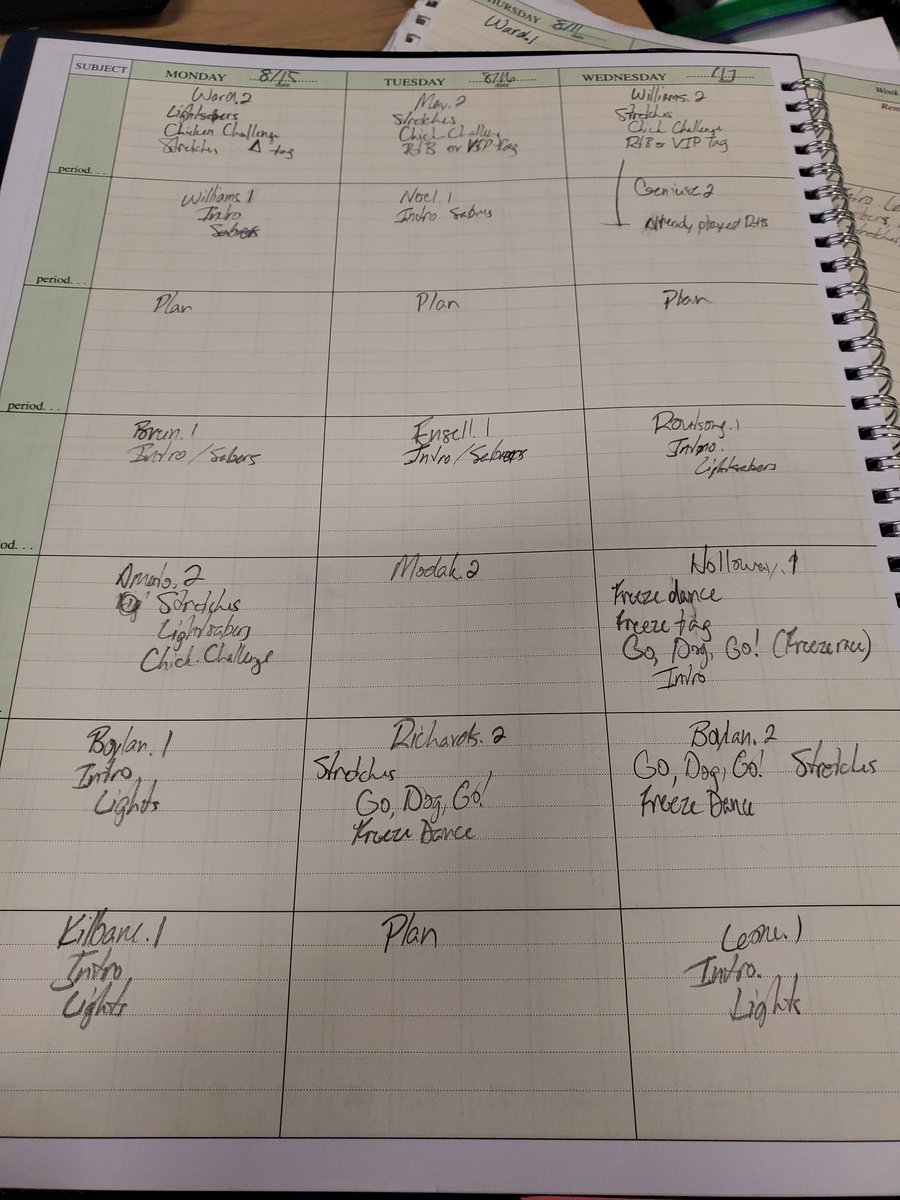 THURSDAY 8/11
date
Ward.1
SUBJECT
MONDAY 8/15
date
TUESDAY 8/16
date
WEDNESDAY /17
date
Week
Ward.2
Lightsabers
Chicken Challenge
Stretches Δ tag
May.2
Stretches
Chick Challenge
RtB or VIP Tag
Williams.2
Stretches
Chick Challenge
RtB or VIP Tag
period. . .
Williams.1
Intro
Sabers
Noel.1
Intro Sabers
Geniuse 2
Already played RtB
period. . .
Plan
Plan
Plan
period. . .
Brun.1
Intro/Sabers
Ensell.1
Intro/Sabers
Routsong.1
Intro.
Lightsabers
od. . .
Amato.2
Stretches
Lightsabers
Chick. Challenge
Modak.2
Holloway.1
Freeze dance
Freeze tag
Go, Dog, Go! (Freeze
Intro
Boylan.1
Intro
Lights
Richards.2
Stretches
Go, Dog, Go!
Freeze Dance
Boylan.2
Go, Dog, Go! Stretches
Freeze Dance
Kilbane.1
Intro
Lights
Plan
Leone.1
Intro.
Lights